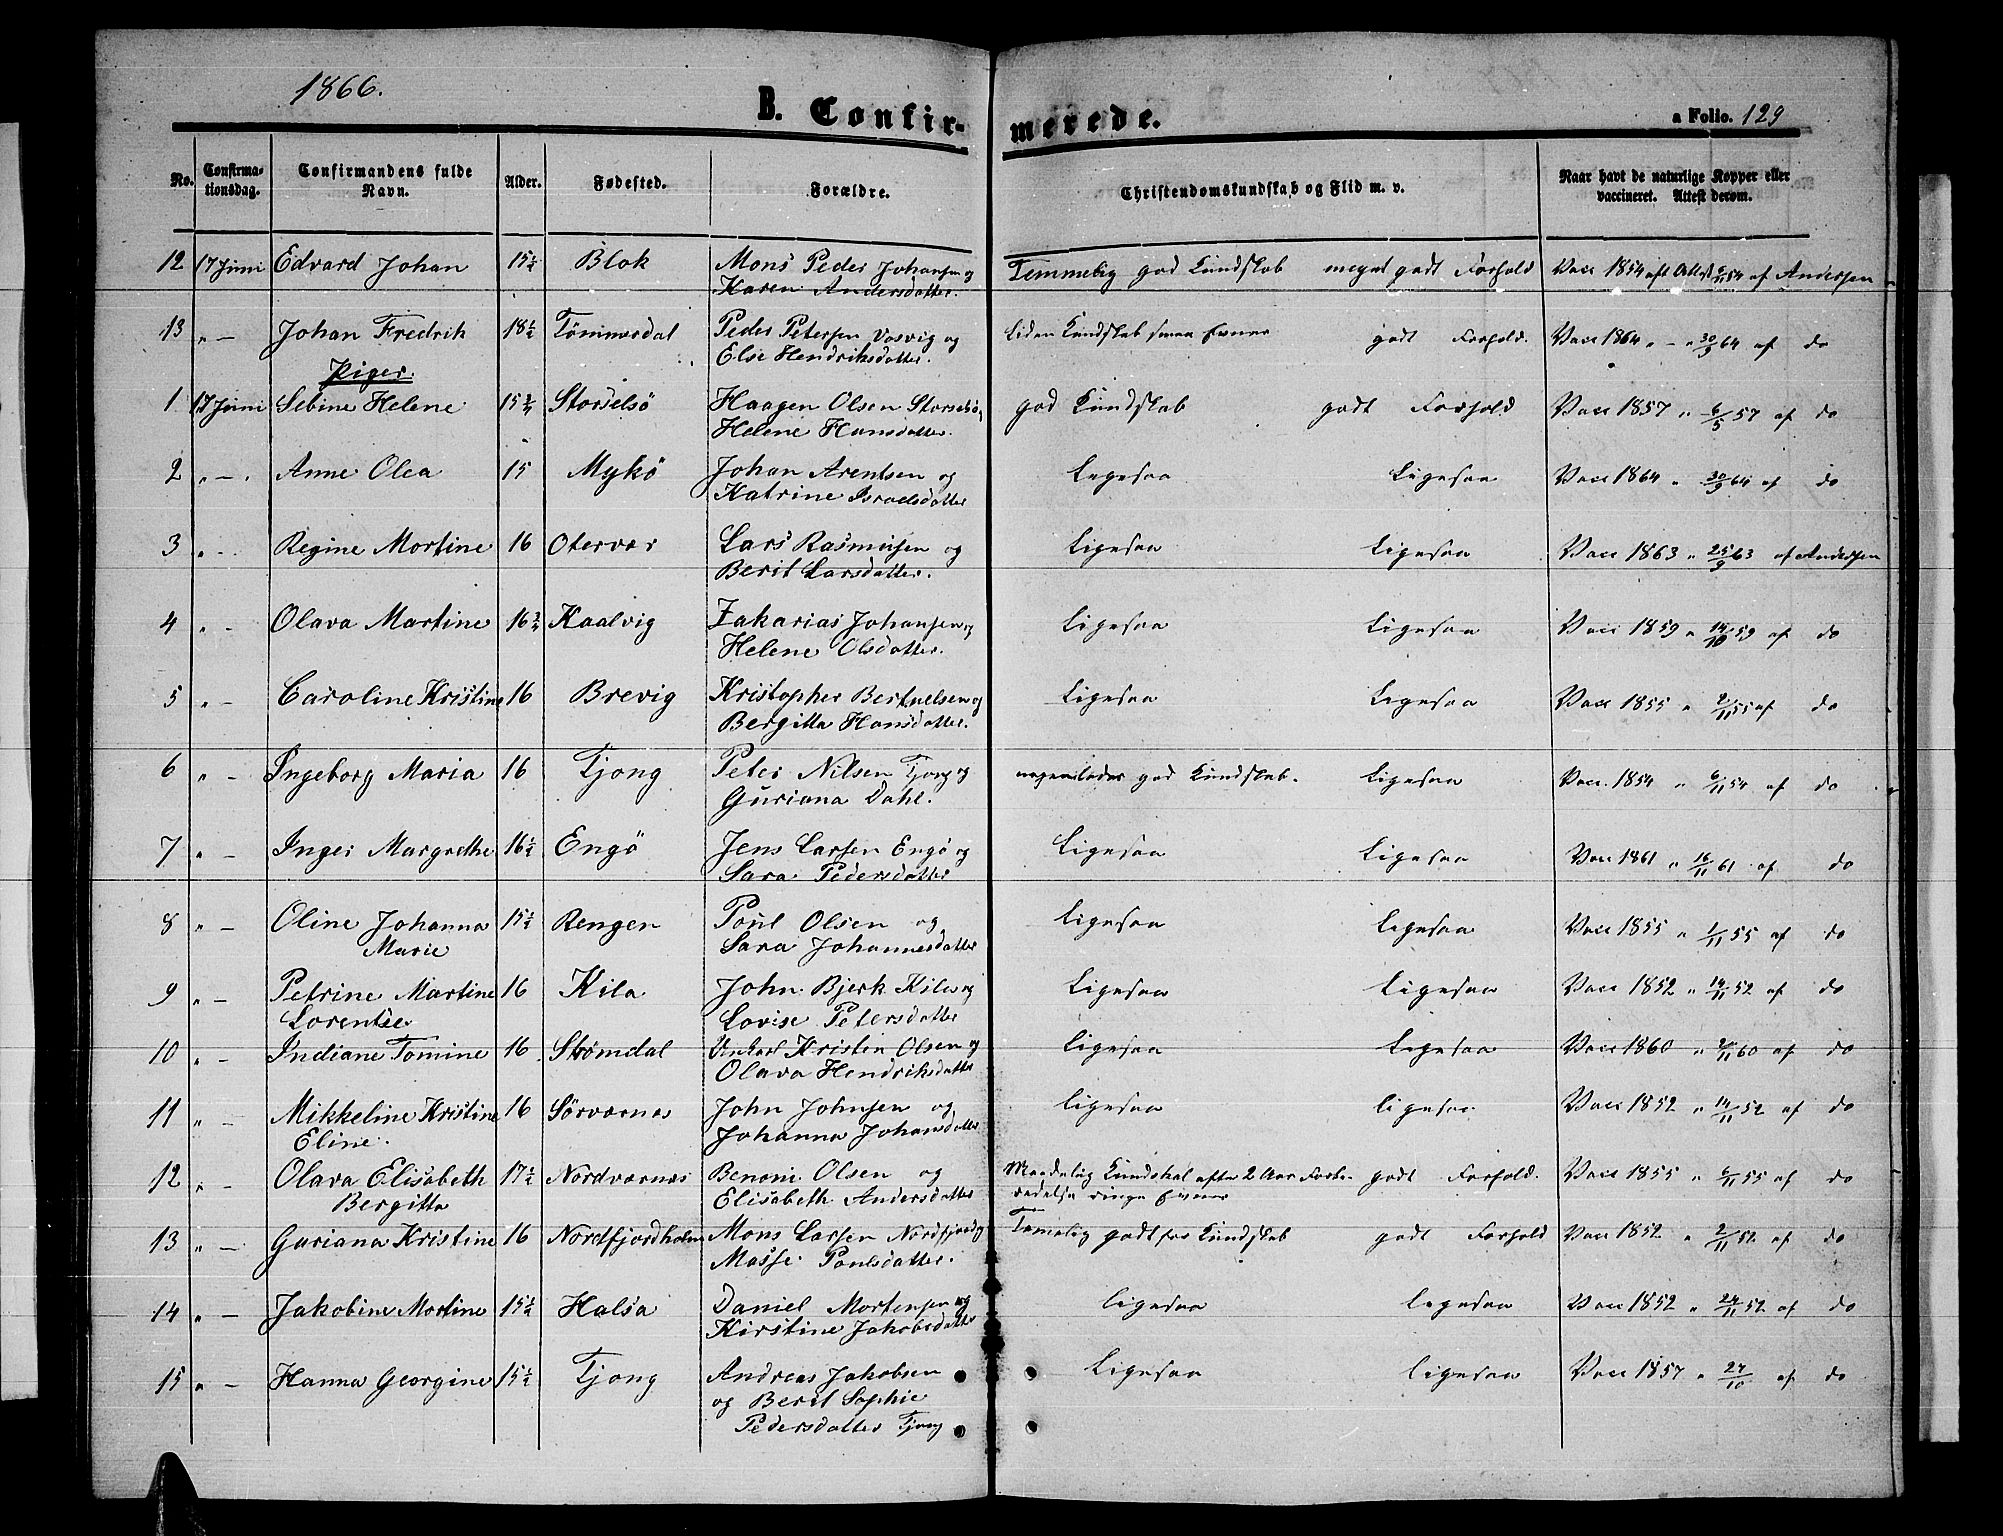 1866.
B. Confirmerede.
a Folio. 129
No. Confirmationsdag. Confirmandens fulde Navn. Alder. Fødested. Forældre. Christendomskundskab og Flid m. v. Naar havt de naturlige Kopper eller vaccineret. Attest derom.
12 17 Juni Edvard Johan 15½ Blok Mons Peder Johansen og Temmelig god Kundskab meget godt Forhold Vacc 1854 aft Attest 54 af Andersen
Karen Andersdatter.
13 " — Johan Fredrik 18½ Tømmerdal Peder Petersen Vosvig og Liden Kundskab smaa Evner godt Forhold. Vacc 1864 " — " 30/9 64 af do
Else Hendriksdatter.
Piger.
1 17 Juni Sebine Helene 15¾ Storselsö Haagen Olsen Storselsö, god Kundskab godt Forhold Vacc 1857 " 6/5 57 af do
Helene Hansdatter.
2 " — . Anne Olea 15 Mykö Johan Arentsen og Ligesaa Ligesaa Vacc 1864 " 30/9 64 af do
Katrine Israelsdatter
3 " — Regine Mortine 16 Otervær Lars Rasmusen og Ligesaa Ligesaa Vacc 1863 " 25/9 63 af Andersen
Berit Larsdatter.
4 " — Olava Martine 16¾ Kaalvig Zakarias Johansen og Ligesaa Ligesaa Vacc 1859 " 14/10 59 af do
Helene Olsdatter.
5 " — Caroline Kristine 16 Brevig Kristopher Bertnelsen og Ligesaa Ligesaa Vacc 1855 " 2/11 55 af do
Bergitta Hansdatter.
6 " — Ingeborg Maria 16 Tjong Peter Nilsen Tjong og god Kundskab. Ligesaa Vacc. 1854 " 6/11 54 af do
Guriana Dahl.
7 " — Inger Margrethe 16½ Engö Jens Larsen Engö og Ligesaa Ligesaa Vacc 1861 " 16/11 61 af do
Sara Pedersdatter
8 " — Oline Johanna 15½ Rengen Poul Olsen og Ligesaa Ligesaa Vacc 1855 " 1/11 55 af do
Marie Sara Johannesdatter
9 " — Petrine Martine 16 Kila John Bjerk Kila og Ligesaa Ligesaa Vacc 1852 " 14/11 52 af do
Lorentse Lovise Petersdatter
10 " — Indiane Tomine 16 Strømdal Kristen Olsen og Ligesaa Ligesaa Vacc 1860 " 20/11 60 af do
Olava Hendriksdatter
11 " — Mikkeline Kristine 16 Sörværnes John Johnsen og Ligesaa Ligesaa Vacc 1852 " 14/11 52 af do
Eline. Johanna Johansdatter
12 " — Olava Elisabeth 17½ Nordværnes Benoni Olsen og Maadelig Kundskab efter 2 Aars Forbe- godt Forhold. Vacc 1855 " 6/11 55 af do
Bergitta Elisabeth Andersdatter redelse ringe Evner
13 " — Guriana Kristine 16 Nordfjordholm Mons Larsen Nordfjord og Temmelig godt for Kundskab godt Forhold Vacc 1852 " 2/11 52 af do
Masse Poulsdatter.
14 " — Jakobine Mortine 15½ Halsa Daniel Mortensen og Ligesaa Ligesaa Vacc 1852 " 24/11 52 af do
Kirstine Jakobsdatter
15 " — Hanna Georgine 15½ Tjong Andreas Jakobsen Ligesaa Ligesaa Vacc 1857 " 27/10 af do
og Berit Sophie
Pedersdatter Tjong